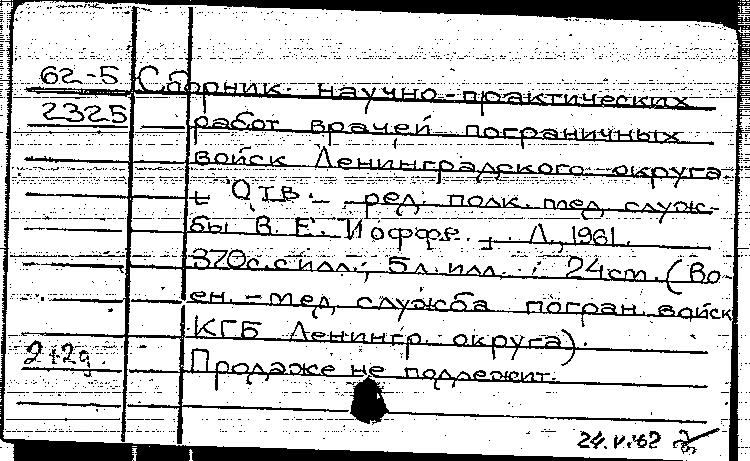 62-5 Сборник научно-практических
2325 работ врачей пограничных
войск Ленинградского округа.
Отв. ред. полк. мед. служ-
бы В. Е. Иоффе. Л., 1961.
320с. с илл.; 5л. илл. ; 24 cm. (Во-
ен.-мед. служба погран. войск
КГБ Ленингр. округа).
2+2д. Продаже не подлежит.
24.V.62